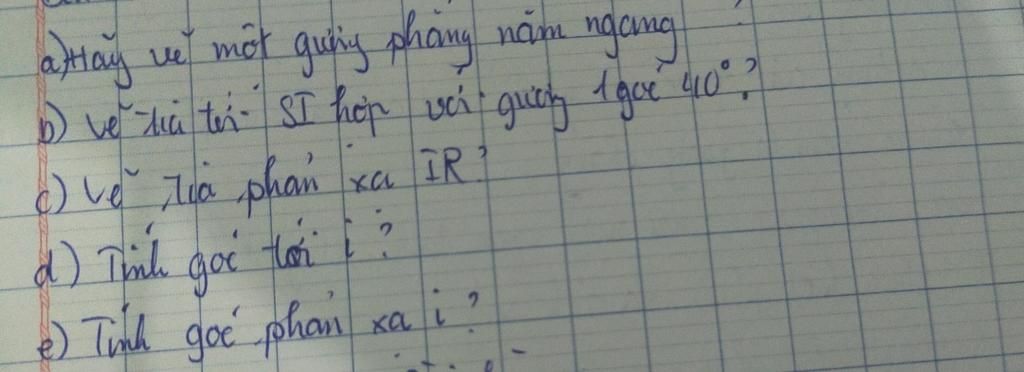 a) Hãy vẽ một gương phẳng nằm ngang
b) vẽ tia tới SI hợp với gương 1 góc 40°?
c) Vẽ tia phản xạ IR?
d) Tính góc tới i?
e) Tính góc phản xạ i?